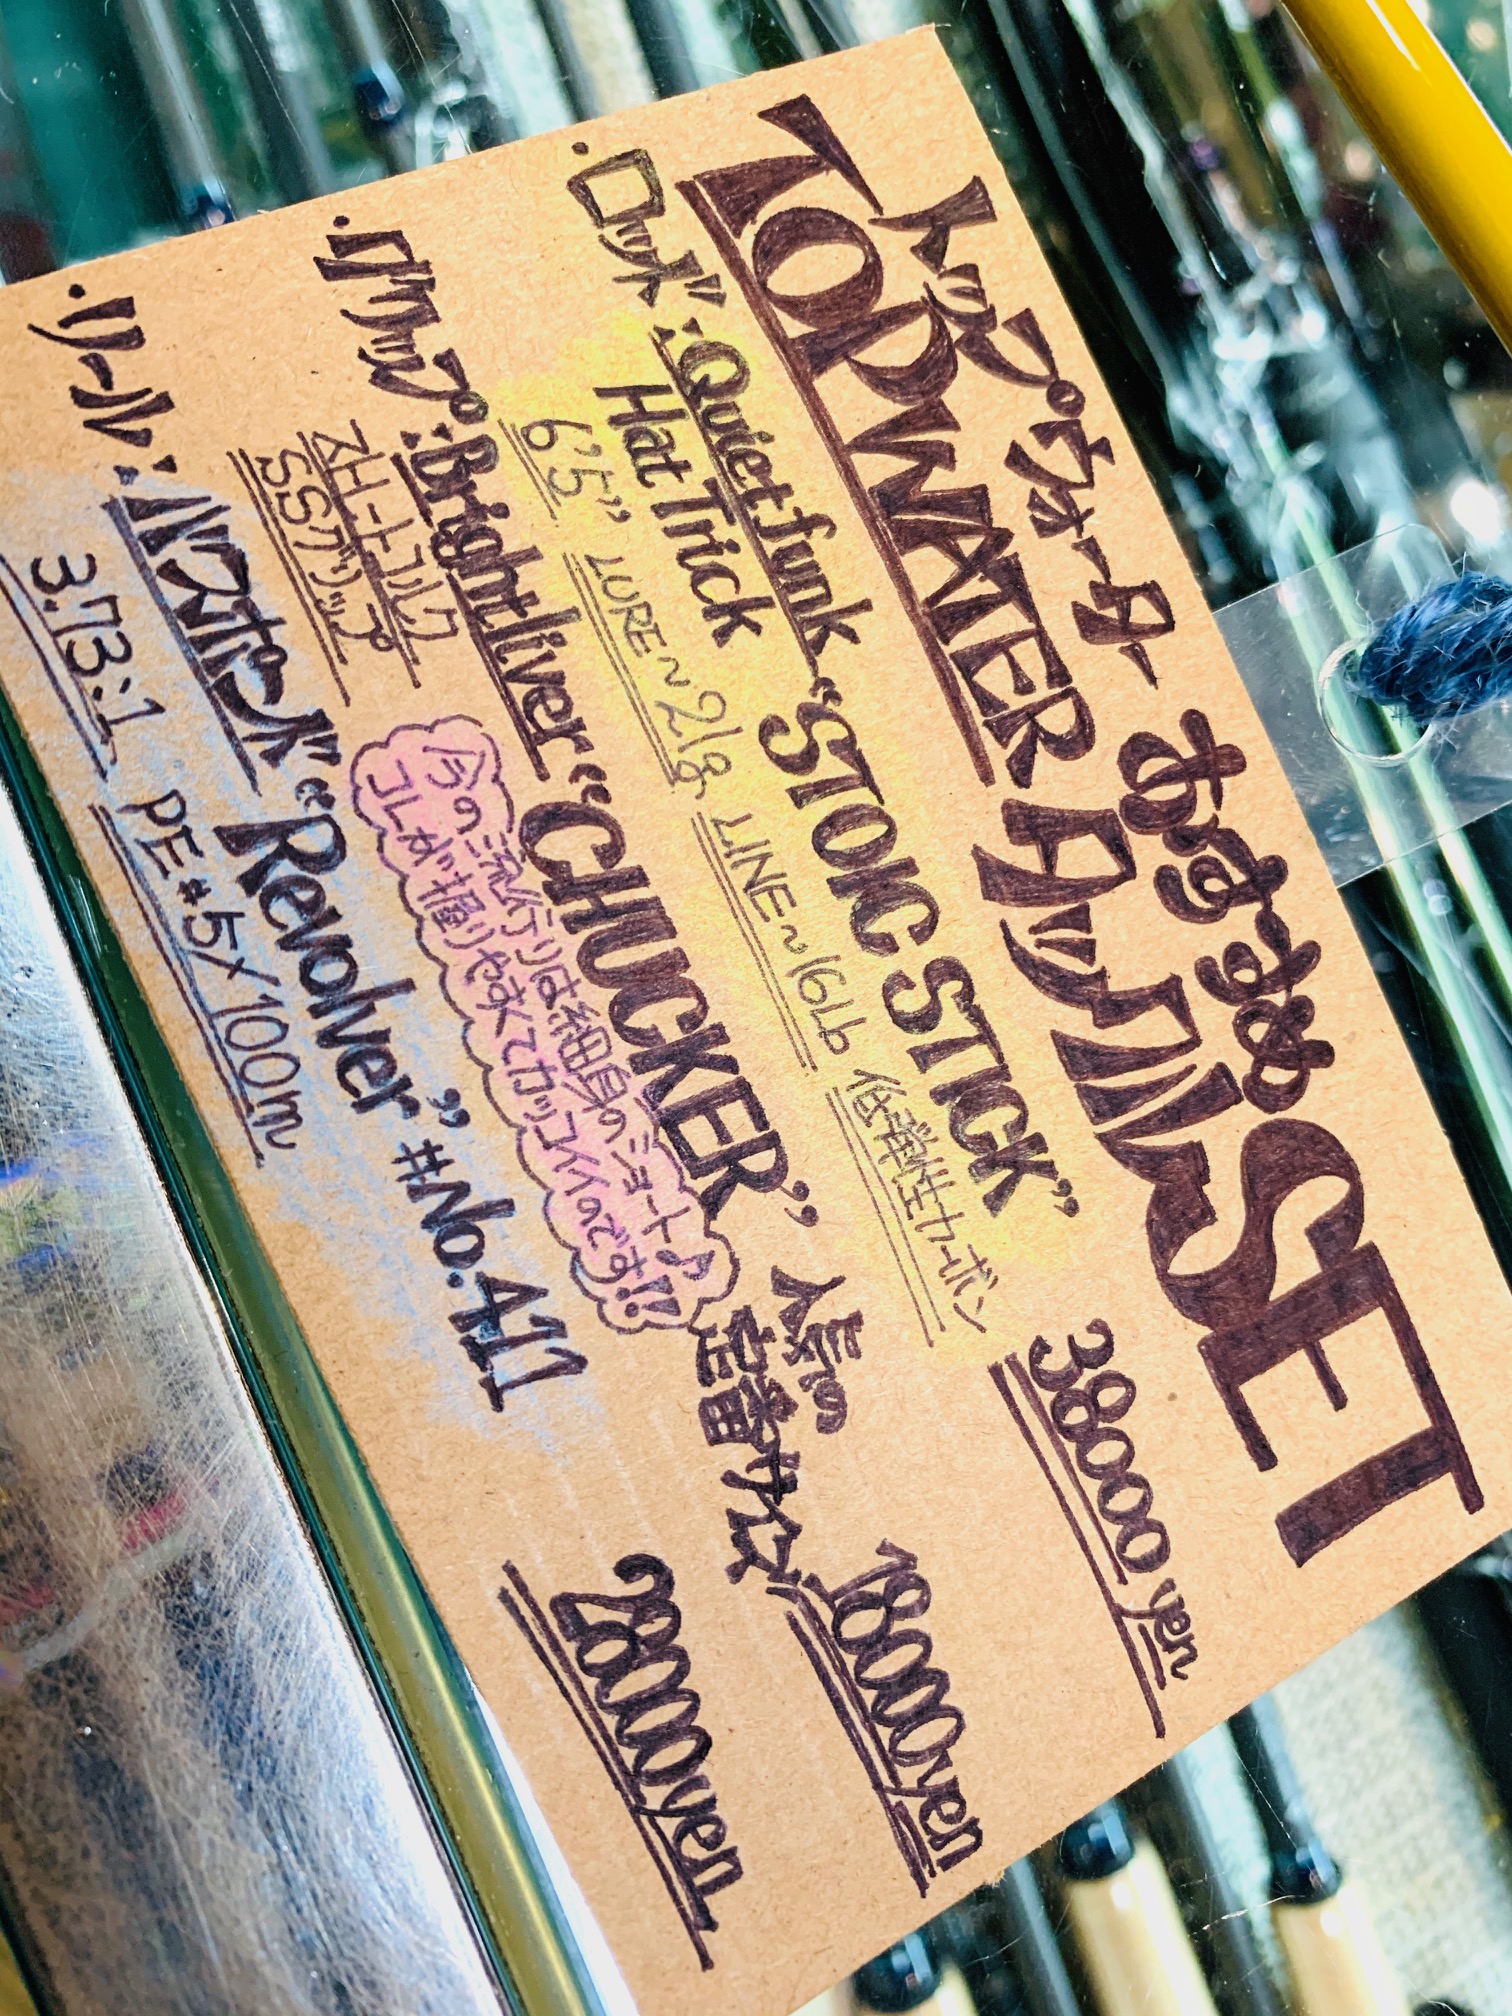 トップウォーター おすすめ
TOPWATER タックルSET
・ロッド:Quietfunk "STOIC STICK"
Hat Trick
6'5" LURE~21g LINE~16Lb 低弾性カーボン
38000yen
・グリップ:Brightliver "CHUCKER" 人気の
定番サイズ
ストレートコルク
SSグリップ
18000yen
今の流行りは細身のショート♪
コレが握りやすくてカッコイイのです!!
・リール:バスポンド "Revolver" #No.411
3.73:1 PE#5×100m
28000yen